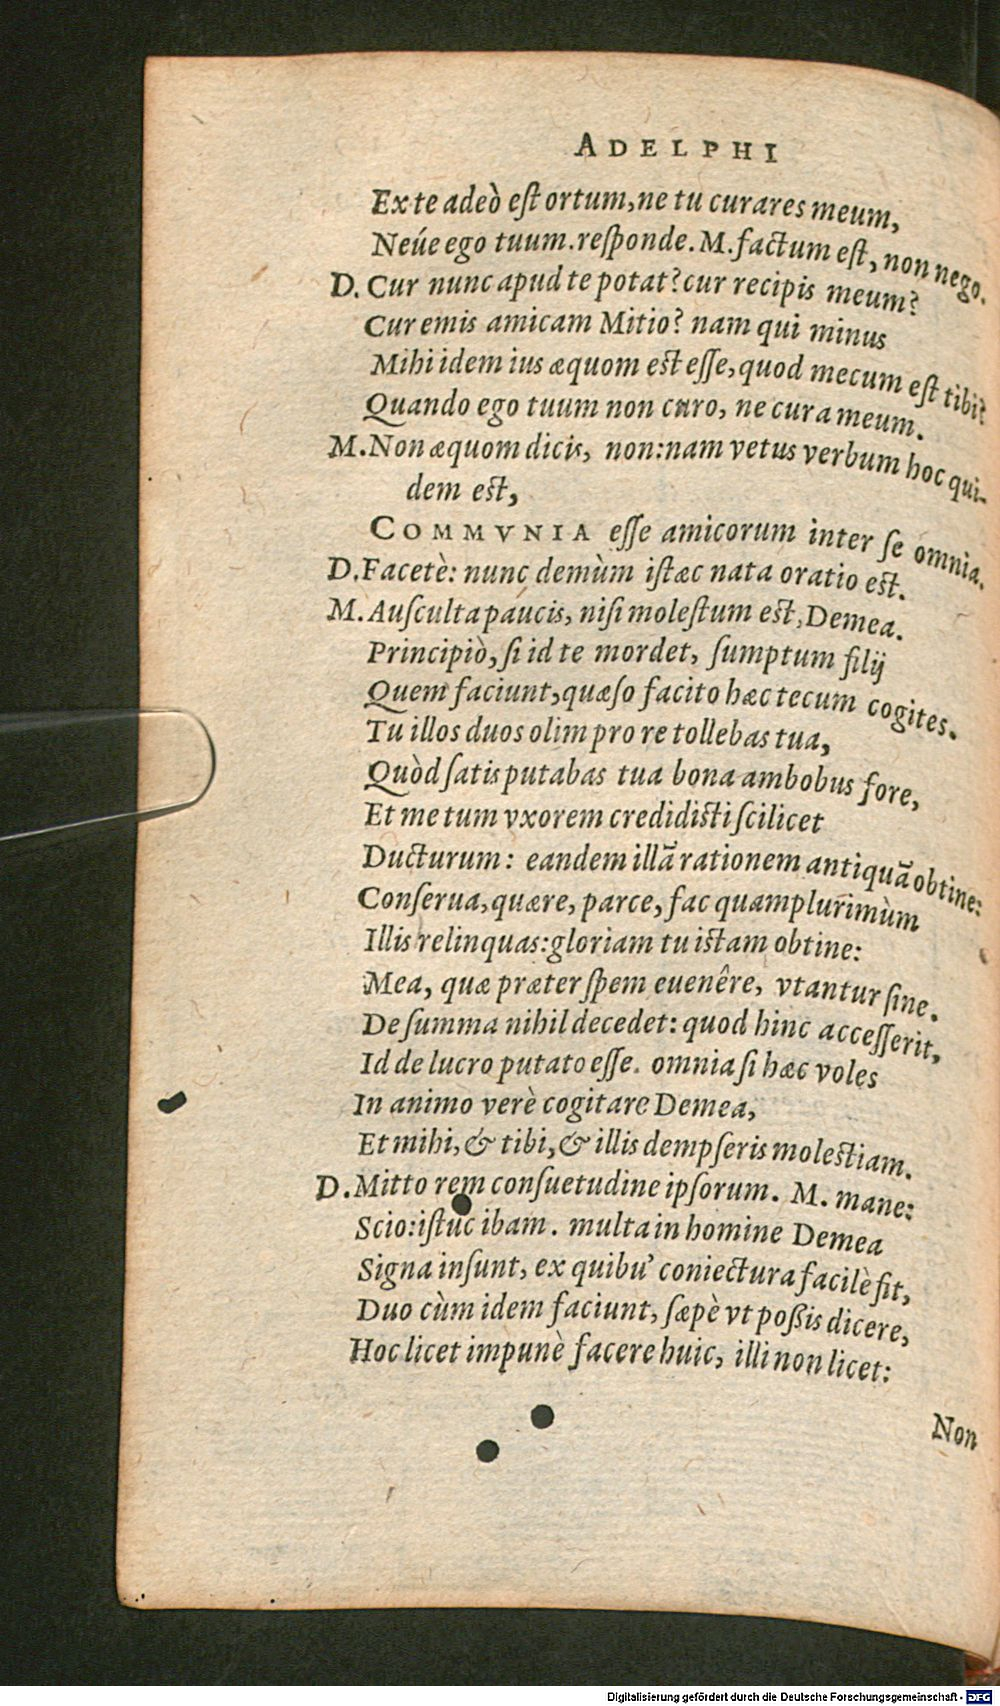 ADELPHI
Ex te adeò est ortum, ne tu curares meum,
Neúe ego tuum. responde. M. factum est, non nego.
D. Cur nunc apud te potat? cur recipis meum?
Cur emis amicam Mitio? nam qui minus
Mihi idem ius æquom est esse, quod mecum est tibi?
Quando ego tuum non curo, ne cura meum.
M. Non æquom dicis, non: nam vetus verbum hoc qui-
dem est,
COMMVNIA esse amicorum inter se omnia.
D. Facetè: nunc demùm istæc nata oratio est.
M. Ausculta paucis, nisi molestum est, Demea.
Principiò, si id te mordet, sumptum filij
Quem faciunt, quæso facito hæc tecum cogites.
Tu illos duos olim pro re tollebas tua,
Quòd satis putabas tua bona ambobus fore,
Et me tum vxorem credidisti scilicet
Ducturum: eandem illā rationem antiquā obtine:
Conserua, quære, parce, fac quamplurimùm
Illis relinquas: gloriam tu istam obtine:
Mea, quæ præter spem euenêre, vtantur sine.
De summa nihil decedet: quod hinc accesserit,
Id de lucro putato esse. omnia si hæc voles
In animo verè cogitare Demea,
Et mihi, & tibi, & illis dempseris molestiam.
D. Mitto rem consuetudine ipsorum. M. mane:
Scio: istuc ibam. multa in homine Demea
Signa insunt, ex quibu' coniectura facilè fit,
Duo cùm idem faciunt, sæpè vt possis dicere,
Hoc licet impunè facere huic, illi non licet:
Non
Digitalisierung gefördert durch die Deutsche Forschungsgemeinschaft - DFG